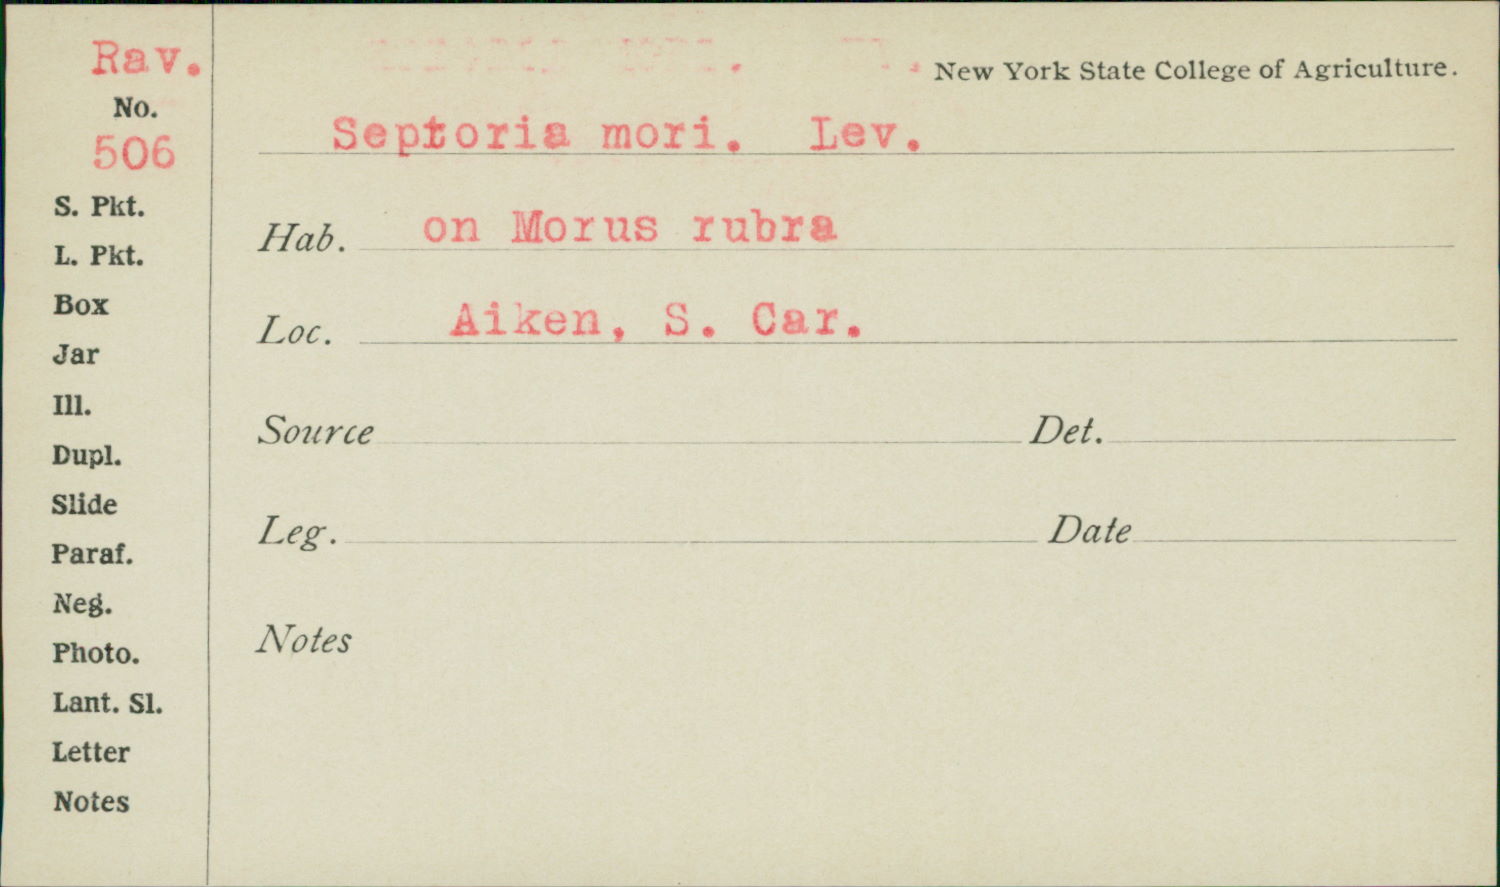 Rav.
No.
506
S. Pkt.
L. Pkt.
Box
Jar
Ill.
Dupl.
Slide
Paraf.
Neg.
Photo.
Lant. Sl.
Letter
Notes
New York State College of Agriculture.
Septoria mori. Lev.
Hab. on Morus rubra
Loc. Aiken, S. Car.
Source Det.
Leg. Date
Notes